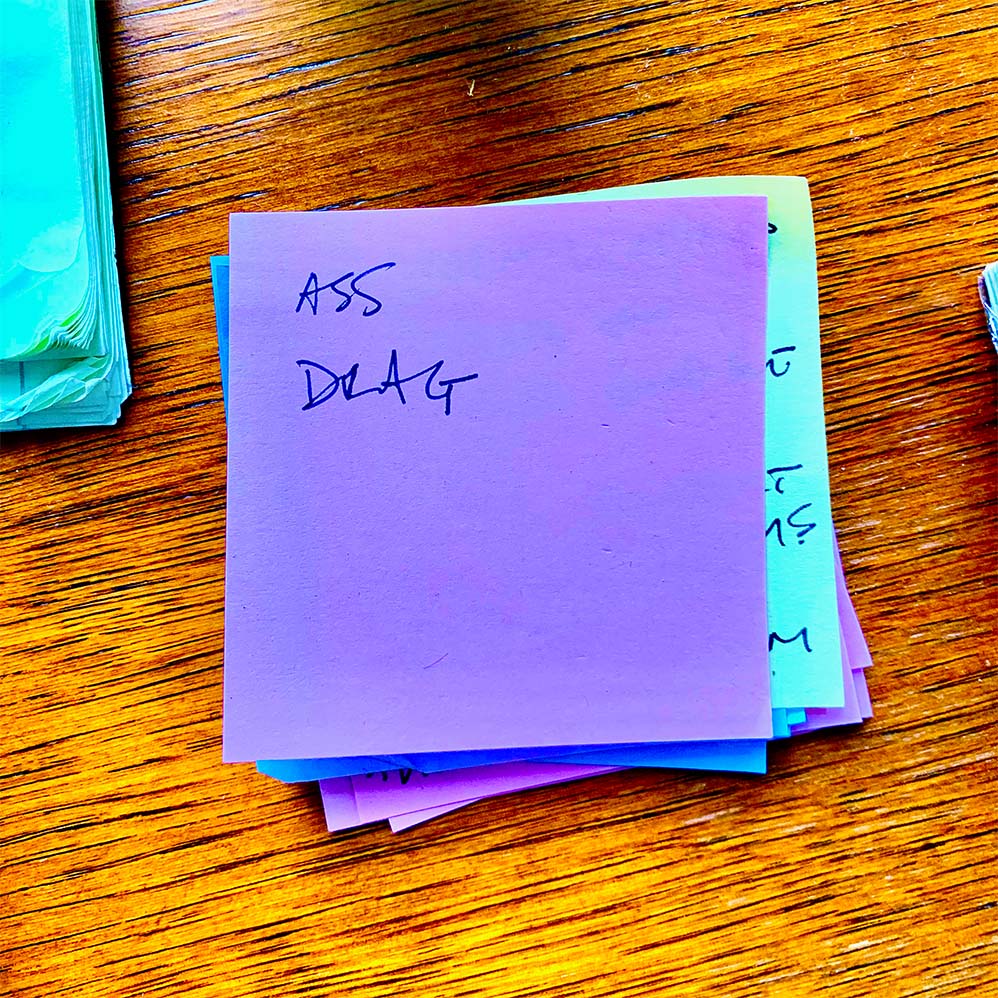 ASS
DRAG